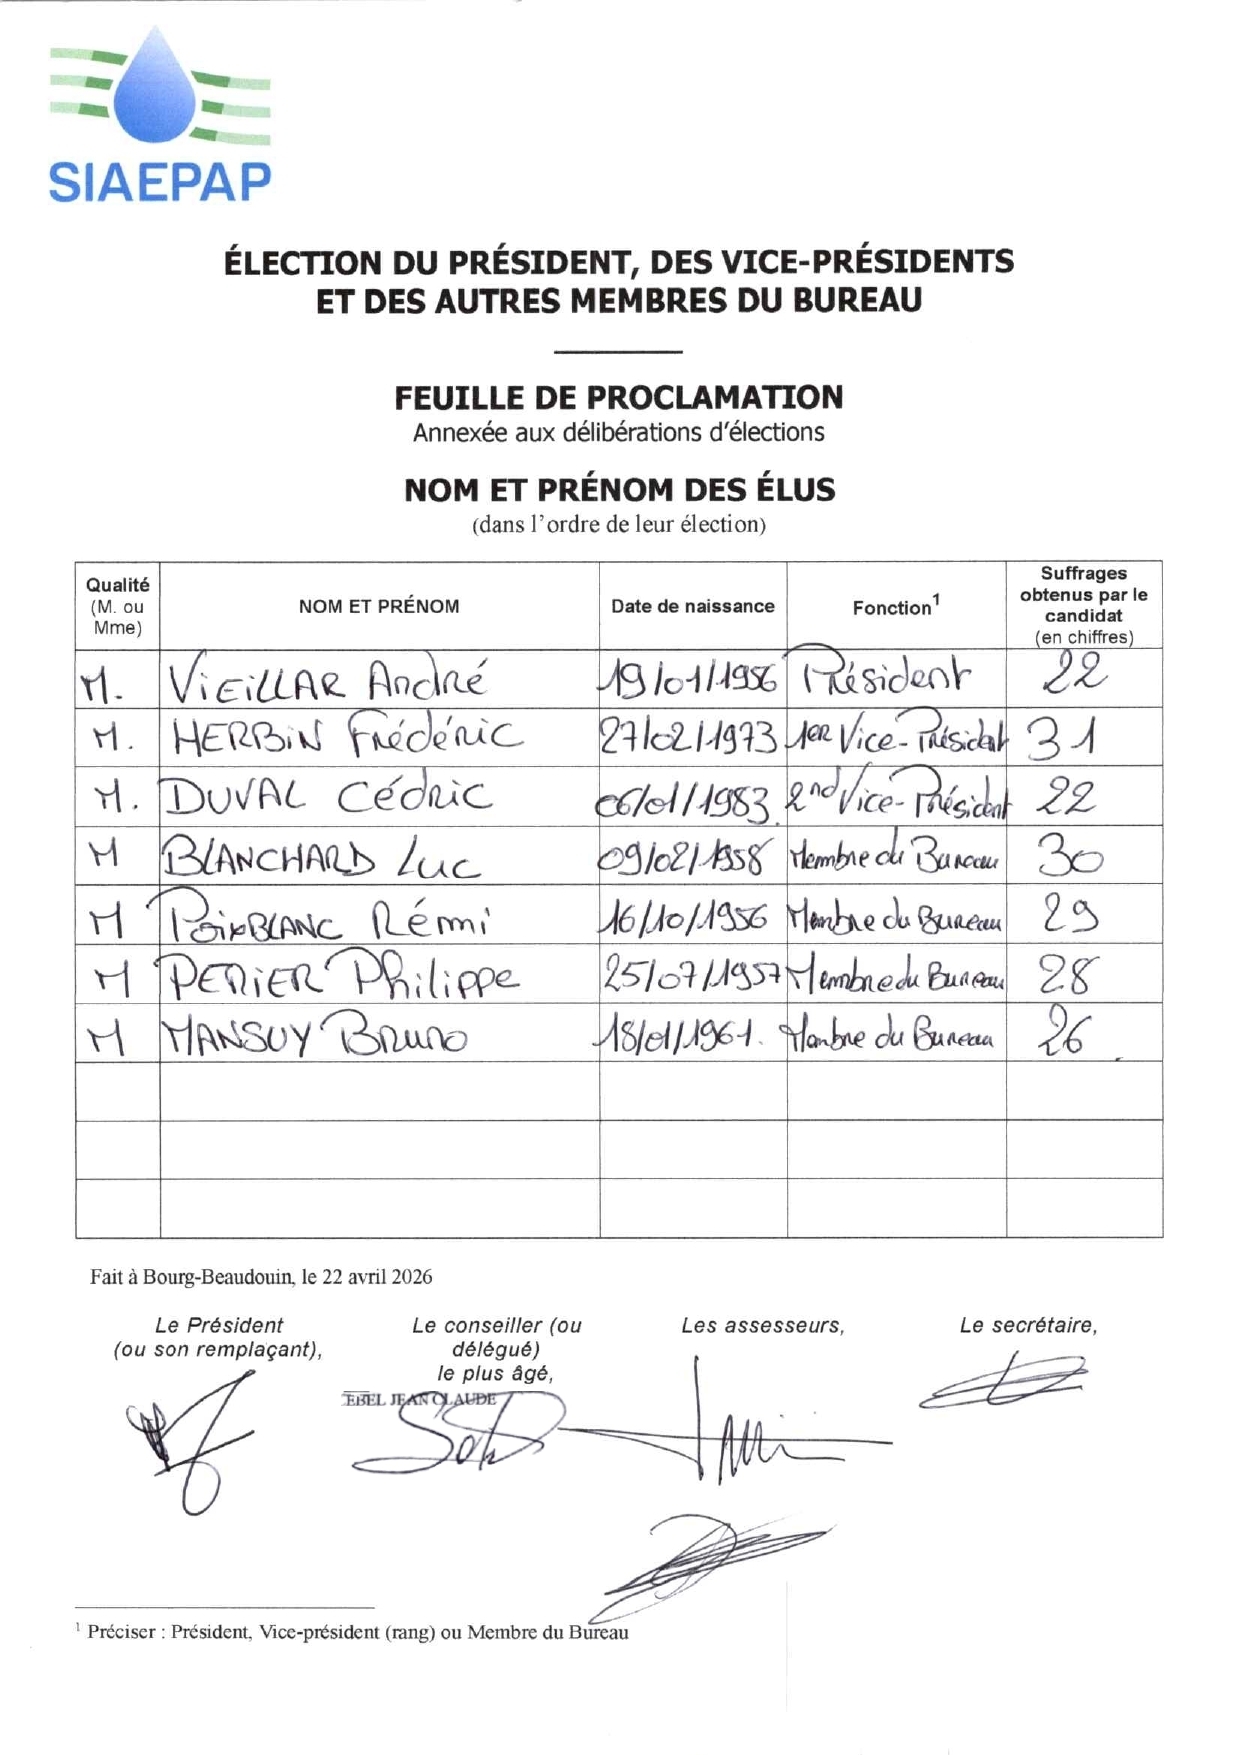 SIAEPAP
ÉLECTION DU PRÉSIDENT, DES VICE-PRÉSIDENTS
ET DES AUTRES MEMBRES DU BUREAU
FEUILLE DE PROCLAMATION
Annexée aux délibérations d'élections
NOM ET PRÉNOM DES ÉLUS
(dans l'ordre de leur élection)
Qualité (M. ou Mme) NOM ET PRÉNOM Date de naissance Fonction1 Suffrages obtenus par le candidat (en chiffres)
M. VIEILLAR André 19/01/1956 Président 22
M. HERBIN Frédéric 27/02/1973 1er Vice-Président 31
M. DUVAL Cédric 06/01/1983 2nd Vice-Président 22
M BLANCHARD Luc 09/02/1958 Membre du Bureau 30
M POIXBLANC Rémi 16/10/1956 Membre du Bureau 29
M PERIER Philippe 25/07/1957 Membre du Bureau 28
M MANSUY Bruno 18/01/1961. Membre du Bureau 26
Fait à Bourg-Beaudouin, le 22 avril 2026
Le Président
(ou son remplaçant),
Le conseiller (ou
délégué)
le plus âgé,
EBEL JEAN CLAUDE
Les assesseurs,
Le secrétaire,
1 Préciser : Président, Vice-président (rang) ou Membre du Bureau